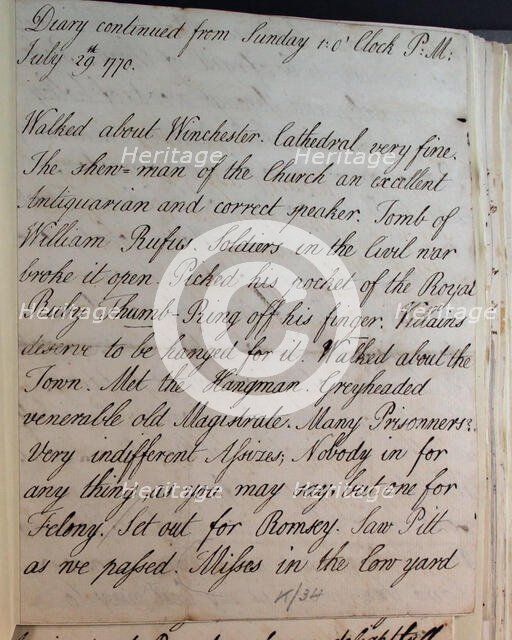 Diary continued from Sunday 1:0' Clock P: M:
July 29th. 1770.
Walked about Winchester. Cathedral very fine.
The shew=man of the Church an excellent
Antiquarian and correct speaker. Tomb of
William Rufus. Soldiers in the Civil war
broke it open. Picked his pocket of the Royal
Thumb-Ring off his finger. Villains
deserve to be hanged for it. Walked about the
Town. Met the Hangman. Greyheaded
venerable old Magistrate. Many Prisonners:
Very indifferent Assizes; Nobody in for
any thing as you may say, but one for
Felony. Set out for Romsey. Saw Pitt
as we passed. Misses in the low yard
K/34
Heritage
Heritage
Heritage
Heritage
Heritage
Heritage
C